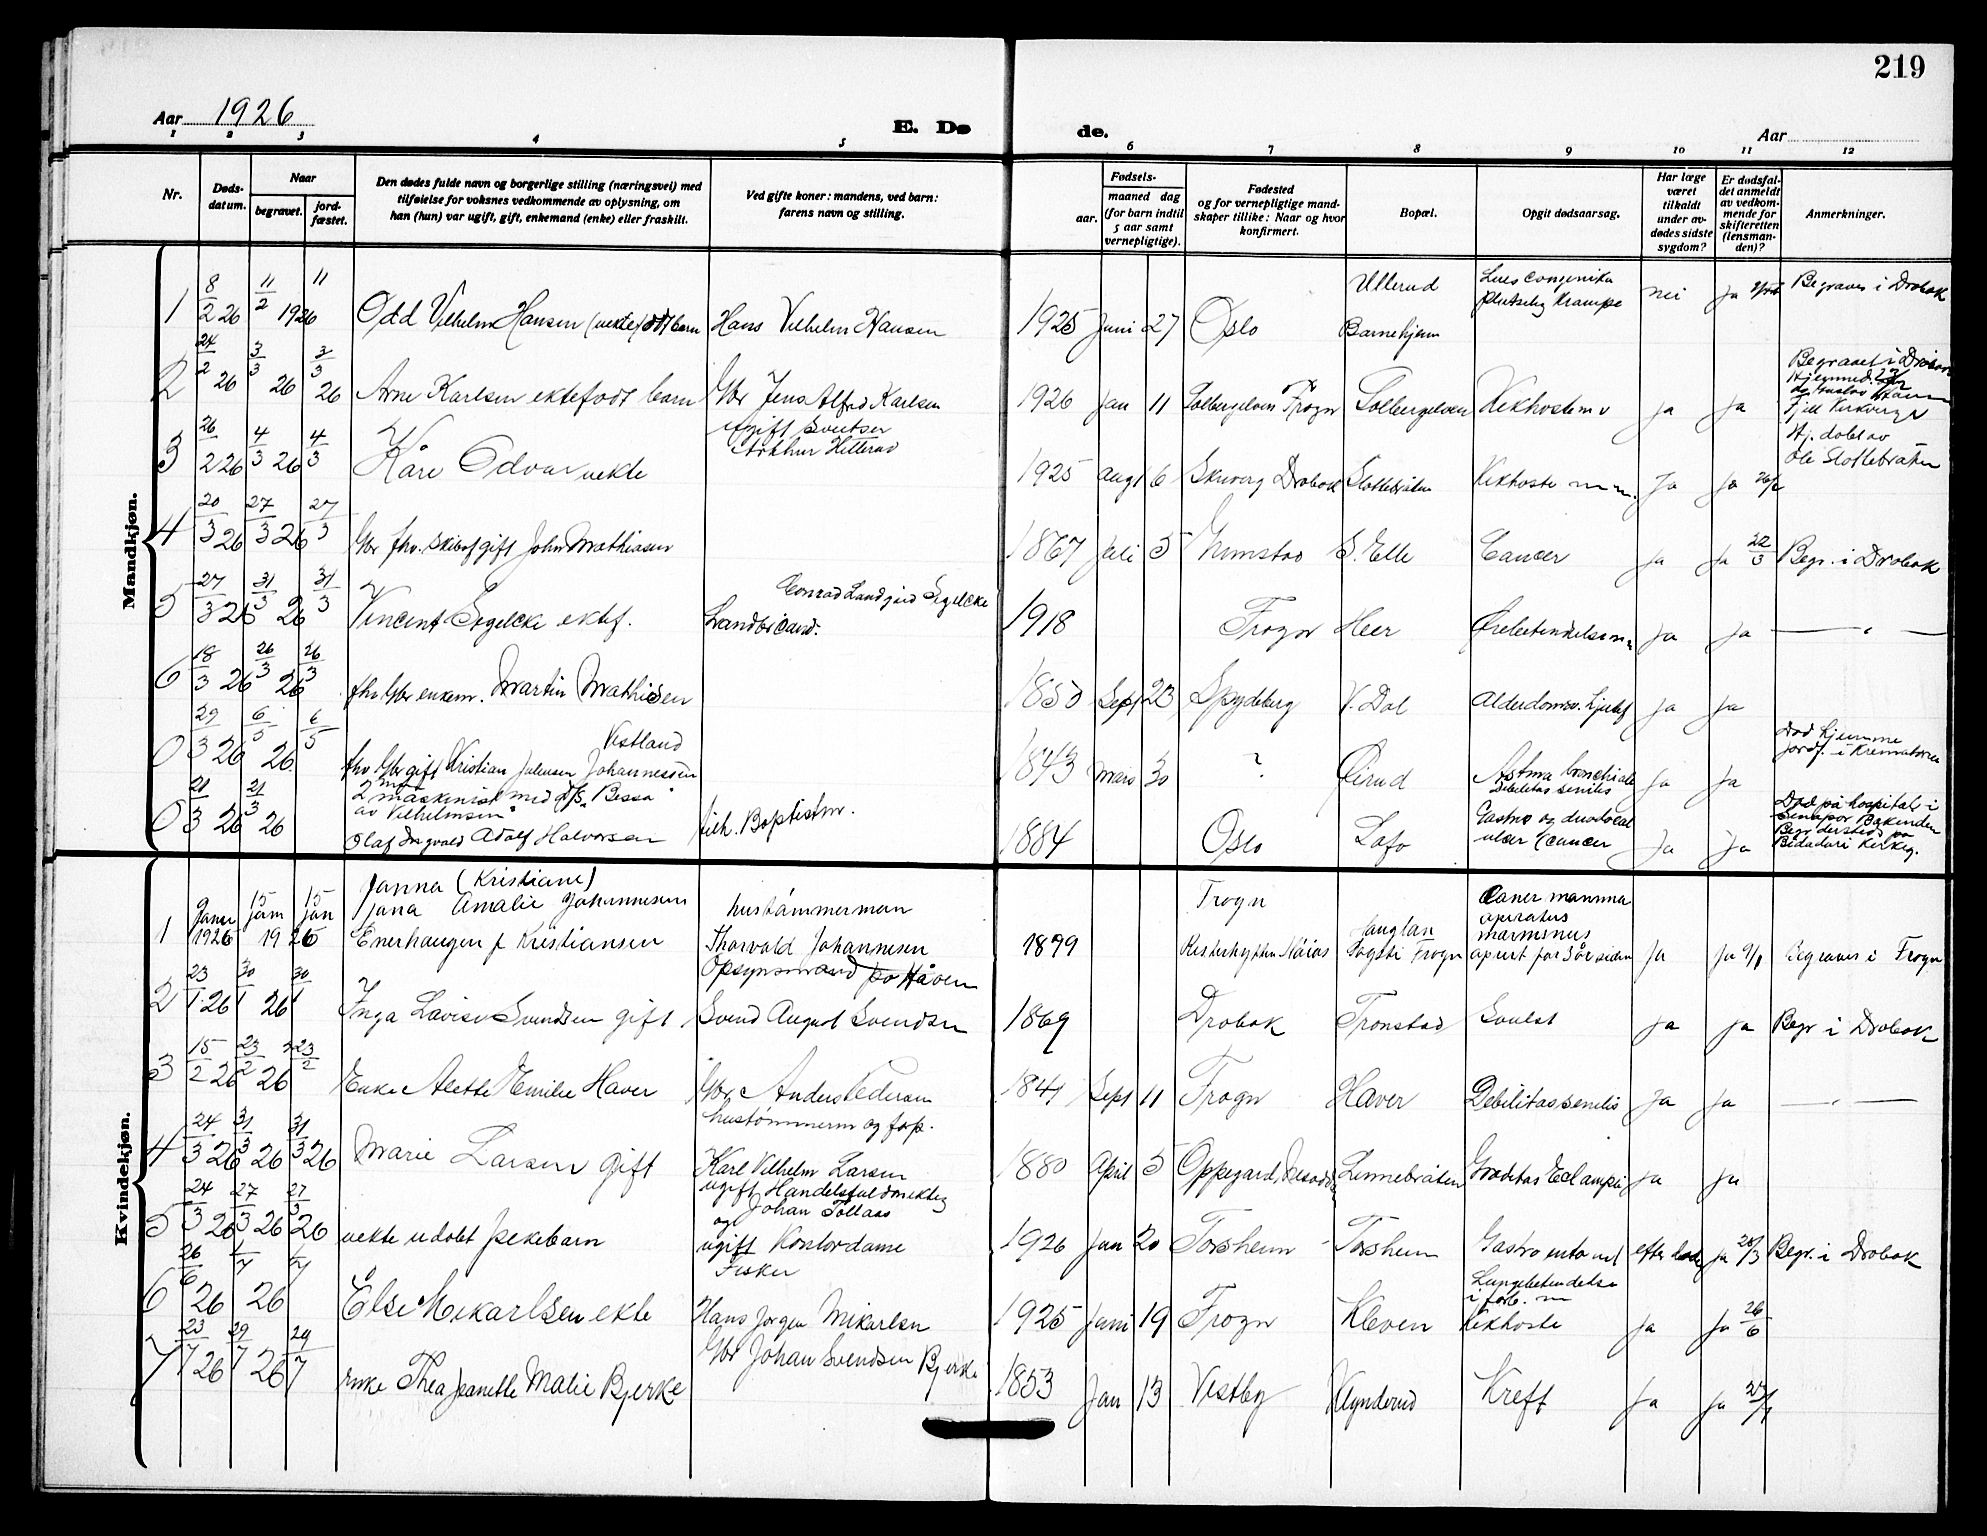 219
Aar 1926
E. Dø de.
Aar
1 2 3 4 5 6 7 8 9 10 11 12
Nr.
Døds-datum.
Naar
begravet.
jord-fæstet.
Den dødes fulde navn og borgerlige stilling (næringsvei) med
tilføielse for voksnes vedkommende av oplysning, om
han (hun) var ugift, gift, enkemand (enke) eller fraskilt.
Ved gifte koner: mandens, ved barn:
farens navn og stilling.
Fødsels-
aar.
maaned dag
(for barn indtil
5 aar samt
vernepligtige).
Fødested
og for vernepligtige mand-
skaper tillike: Naar og hvor
konfirmert.
Bopæl.
Opgit dødsaarsag.
Har læge
været
tilkaldt
under av-
dødes sidste
sygdom?
Er dødsfal-
det anmeldt
av vedkom-
mende for
skifteretten
(lensman-
den)?
Anmerkninger.
Mandkjøn.
1 8/2 26 11/2 1926 11 Odd Vilhelm Hansen (uekte) barn Hans Vilhelm Hansen 1925 Juni 27 Oslo Ullerud Barnehjem Lues congenita nei ja Begraves i Drøbak
2 24/2 26 3/3 26 3/3 26 Arne Karlsen ektefødt barn Gbr Jens Alfred Karlsen 1926 Jan 11 Solbergelven Frogn Solbergelven Kikhoste m v ja ja
3 26/2 26 4/3 26 4/3 Kåre Odvar uekte ugift Arthur Hitterud 1925 aug 6 Drøbak Slottebråten Kikhoste m.m. Ja Ja 26/2 Hj. døbt av Ole Slottebråten
4 20/3 26 27/3 26 27/3 Gbr fhv. skibsf gift John Mathiasen 1867 Juli 5 Grimstad S. Elle Cancer ja ja 22/3 Begr. i Drøbak
5 27/3 26 31/3 26 31/3 Vincent Segelcke ektef. Conrad Landgård Segelcke Landbr cand. 1918 Frogn Heer ja ja — " —
6 18/3 26 26/3 26 26/3 fhv Gbr enkem. Martin Mathisen 1850 Sept 23 Spydeberg V. Dal ja ja
0 29/3 26 6/5 26 6/5 fhv Gbr gift Kristian Julensen Johannessen Vestland 1843 mars 30 ? Astma bronchiale Debilitas senilis ja ja Død hjemme jordf. i Krematoriet
0 21/3 26 21/3 26 2 maskinist med D/S "Bessa" av Vilhelmsen Olaf Ingvald Adolf Halvorsen tilh. Baptistm. 1884 Oslo Gastro og duodenal ulcer (cancer Ja Ja Død på hospital i
Kvindekjøn.
1 1926 15 jan 1926 15 jan Janna (Kristiane) Jjana Amalie Johannesen Enerhaugen f Kristiansen hustømmerman Thorvald Johannesen 1899 Frogn Frogn Cancer mamma ja ja 9/1 Begraves i Frogn
2 23/1 26 30/1 26 30/1 Inga Lovise Svendsen gift Opsynsmand på Håven Svend August Svendsen 1869 Drøbak Tronstad Svulst ja ja Begr i Drøbak
3 15/2 26 23/2 26 23/2 Enke Alette Emilie Haver Gbr Anders Pedersen 1841 Sept 11 Frogn Haver Debilitas senilis Ja ja — " —
4 24/3 26 31/3 26 31/3 26 Marie Larsen gift hustømmerm og forp. Karl Vilhelm Larsen 1880 April 5 Oppegard Linnebråten ja ja
5 24/3 26 27/3 26 27/3 26 uekte udøbt pikebarn ugift Handelsfuldmektig Johan Tollaas og ugift Kontordame 1926 Jan 20 Torsheim Torsheim ja 26/3 Begr. i Drøbak
6 26/6 26 26 Else Mikarlsen ekte Fisker Hans Jørgen Mikarlsen 1925 Juni 19 Frogn Kleven Lungebetendelse i forb. m Kikhoste ja ja 26/6
7 23/7 26 29/7 26 29/7 enke Thea Jeanette Malie Bjerke Gbr Johan Svendsen Bjerke 1853 Jan 13 Vestby Klynderud Kreft Ja ja